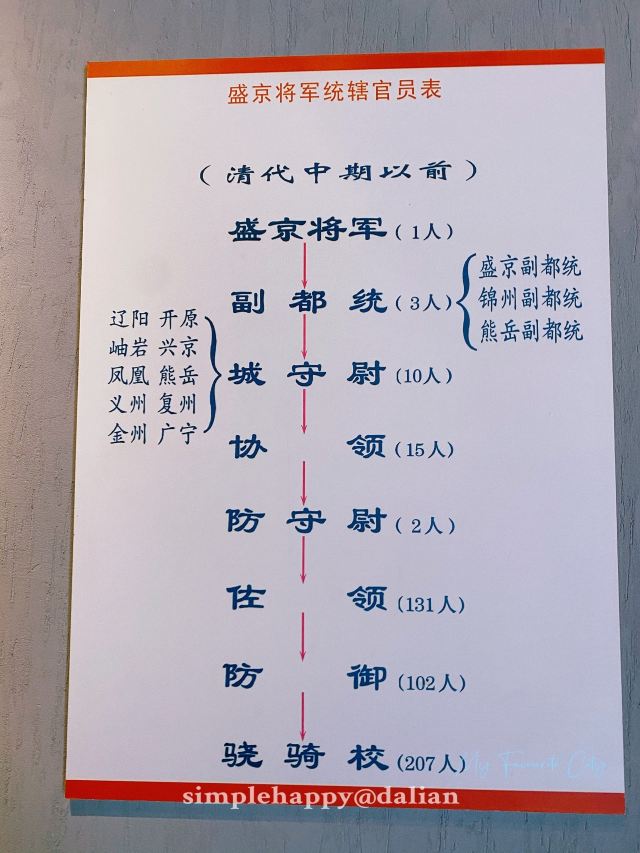 盛京将军统辖官员表
（清代中期以前）
盛京将军（1人）
副都统（3人）
盛京副都统
锦州副都统
熊岳副都统
城守尉（10人）
辽阳 开原
岫岩 兴京
凤凰 熊岳
义州 复州
金州 广宁
协领（15人）
防守尉（2人）
佐领（131人）
防御（102人）
骁骑校（207人）
My Favourite City
simplehappy@dalian